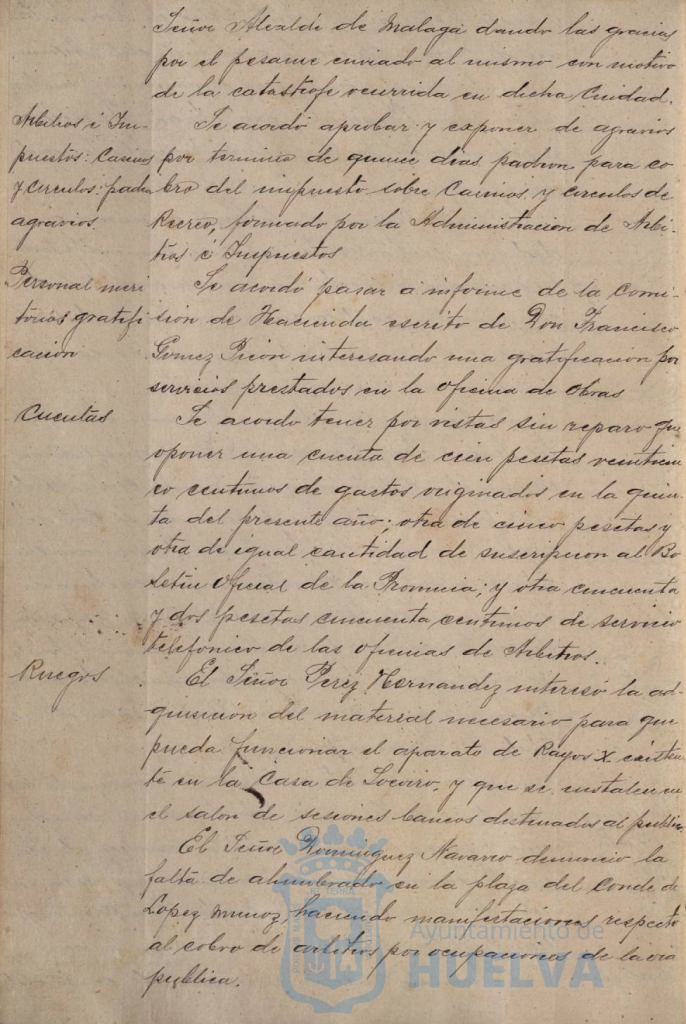 Señor Alcalde de Malaga dando las gracias
por el pesame enviado al mismo con motivo
de la catastrofe ocurrida en dicha Ciudad.
Arbitros é Im-
puestos: Casinos
y circulos: padron
agravios.
Se acordó aprobar y exponer de agravios
por termino de quince dias padron para co-
bro del impuesto sobre Casinos y circulos de
Recreo, formado por la Administracion de Arbi-
trios é Impuestos
Personal meri
torios gratifi-
cación
Se acordó pasar á informe de la Comi-
sion de Hacienda escrito de Don Francisco
Gomez Picon interesando una gratificacion por
servicios prestados en la oficina de obras
Cuentas
Se acordo tener por vistas sin reparo que
oponer una cuenta de cien pesetas veinticin
co centimos de gastos originados en la quin-
ta del presente año; otra de cinco pesetas y
otra de igual cantidad de suscripcion al Bo
letin Oficial de la Provincia; y otra cincuenta
y dos pesetas cincuenta centimos de servicio
telefonico de las oficinas de Arbitros.
Ruegos
El Señor Perez Hernandez interesó la ad-
quisición del material necesario para que
pueda funcionar el aparato de Rayos X existen
te en la Casa de Socorro, y que se instalen en
el salon de sesiones bancos destinados al publico.
El Señor Dominguez Navarro denuncio la
falta de alumbrado en la plaza del Conde de
Lopez Muñoz, haciendo manifestaciones respecto
al cobro de arbitrios por ocupaciones de la via
publica.
Ayuntamiento de
HUELVA